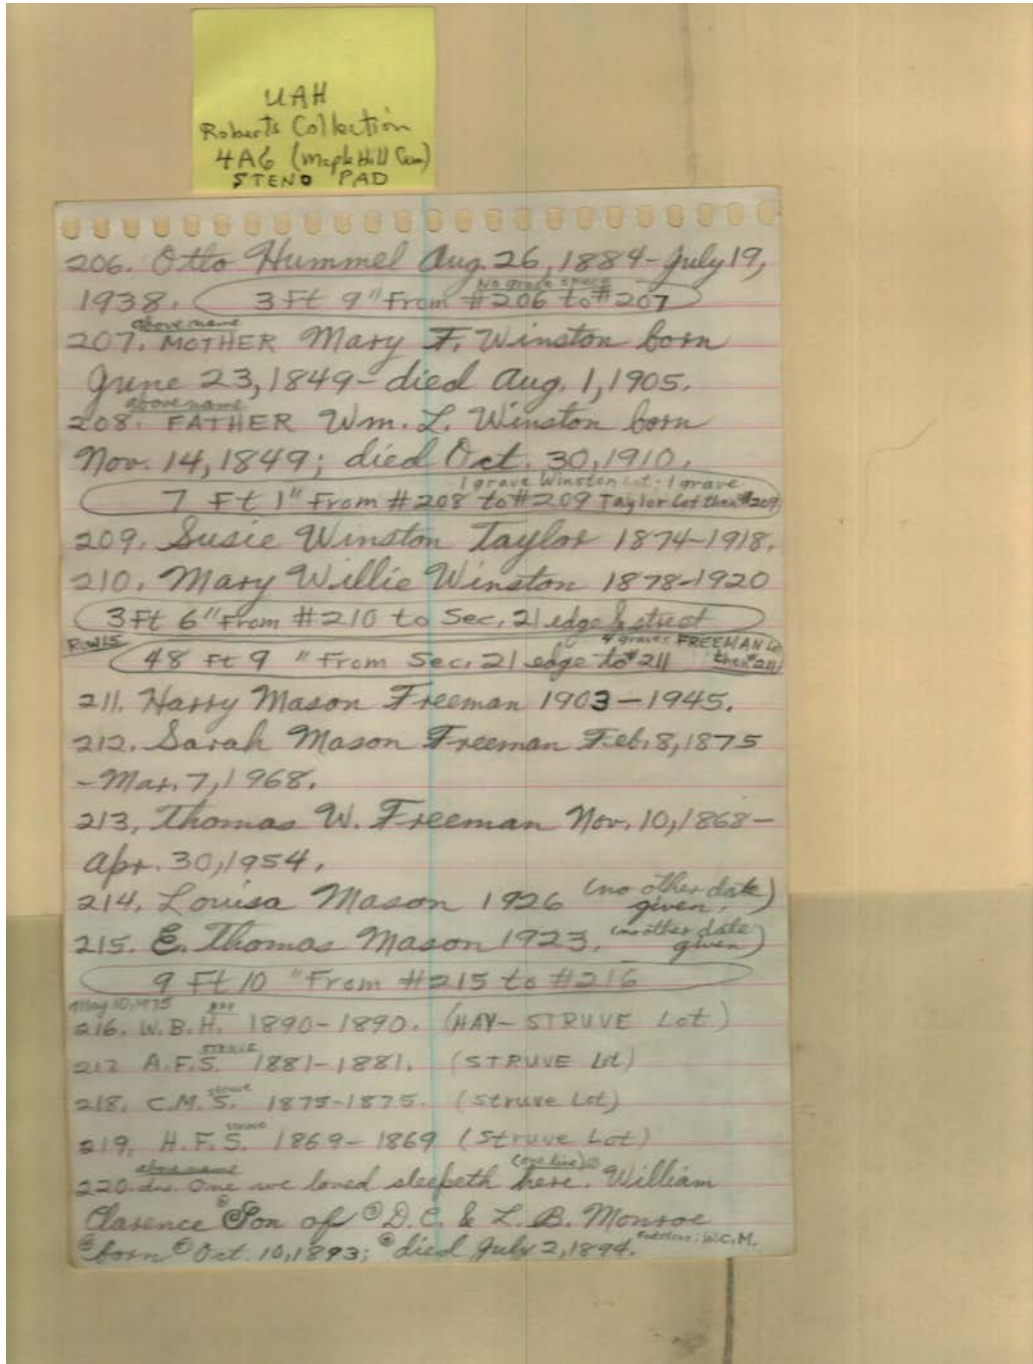 UAH
Roberts Collection
4A6 (Maple Hill Cem)
STENO PAD
206. Otto Hummel Aug. 26, 1884-July 19,
No grave space
1938. 3 Ft 9" From #206 to #207
above name
207. MOTHER Mary F. Winston born
June 23, 1849- died Aug. 1, 1905.
above name
208. FATHER Wm. L. Winston born
Nov. 14, 1849; died Oct. 30, 1910.
1 grave Winston Lot - 1 grave
7 Ft 1" From #208 to #209 Taylor Lot then #209
209. Susie Winston Taylor 1874-1918.
210. Mary Willie Winston 1878-1920
3 Ft 6" From #210 to Sec. 21 edge & street
ROW 15 4 graves FREEMAN Lot
48 Ft 9 " From Sec. 21 edge to #211 then #211
211. Harry Mason Freeman 1903-1945.
212. Sarah Mason Freeman Feb. 8, 1875
-Mar. 7, 1968.
213. Thomas W. Freeman Nov. 10, 1868-
Apr. 30, 1954.
214. Louisa Mason 1926 (no other date
given.)
215. E. Thomas Mason 1923. (no other date
given)
9 Ft 10 " From #215 to #216
May 10, 1975 HAY
216. W.B.H. 1890-1890. (HAY- STRUVE Lot)
STRUVE
217 A.F.S. 1881-1881. (STRUVE Lot)
Struve
218. C.M.S. 1875-1875. (Struve Lot)
Struve
219. H.F.S. 1869-1869 (Struve Lot)
above name (one line)
220. One we loved sleepeth here. William
Clarence Son of D.C. & L.B. Monroe
born Oct. 10, 1893; died July 2, 1894. Footstone: W.C.M.